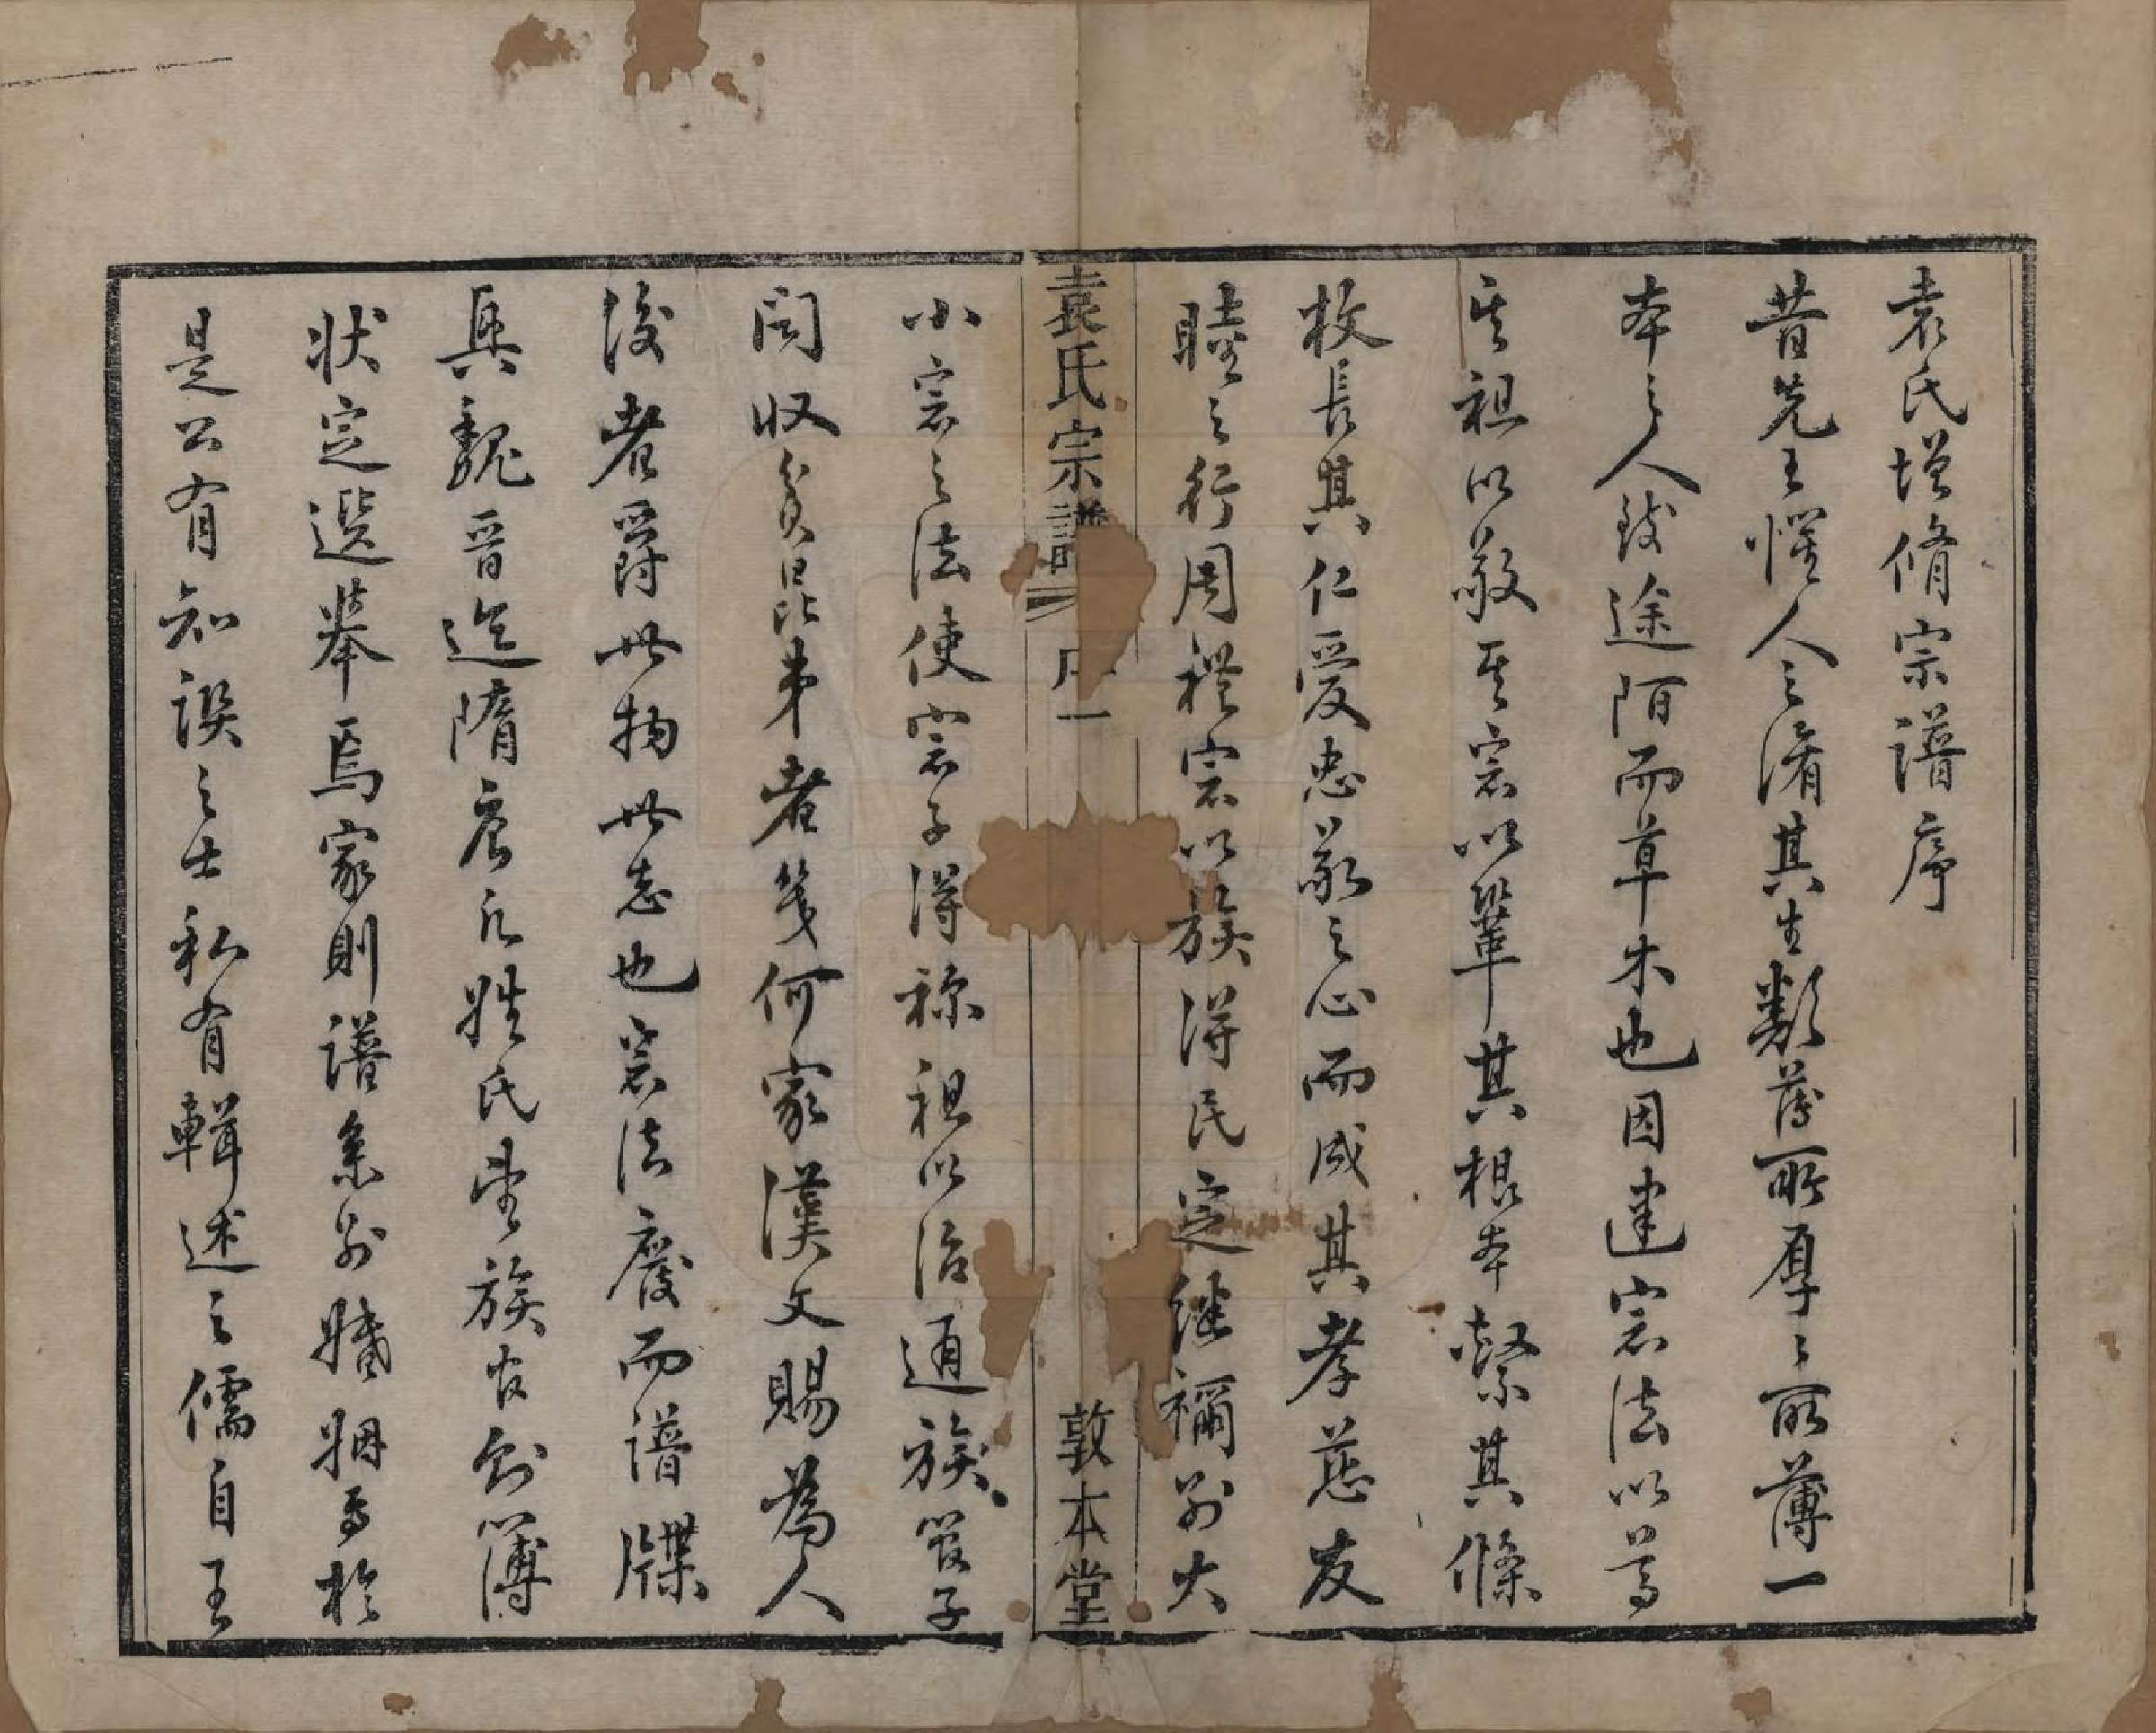 袁氏增脩宗譜序
昔先王懼人之淆其生類薄所厚厚所薄一
本之人致途陌而草木也因建宗法以尊
其祖以敬其宗以鞏其根本繫其條
枚長其仁愛忠敬之心而成其孝慈友
睦之行周禮宗以族得民定繼禰別大
袁氏宗譜 序一 敦本堂
小宗之法使宗子得祢祖以治通族管子
問收貧昆弟者幾何家漢文賜為人
後者爵此物此志也宗法廢而譜牒
興魏晉迄隋唐凡姓氏望族官制簿
狀定選舉焉家則譜系別婚姻焉於
是公有知譔之士私有輯述之儒自王